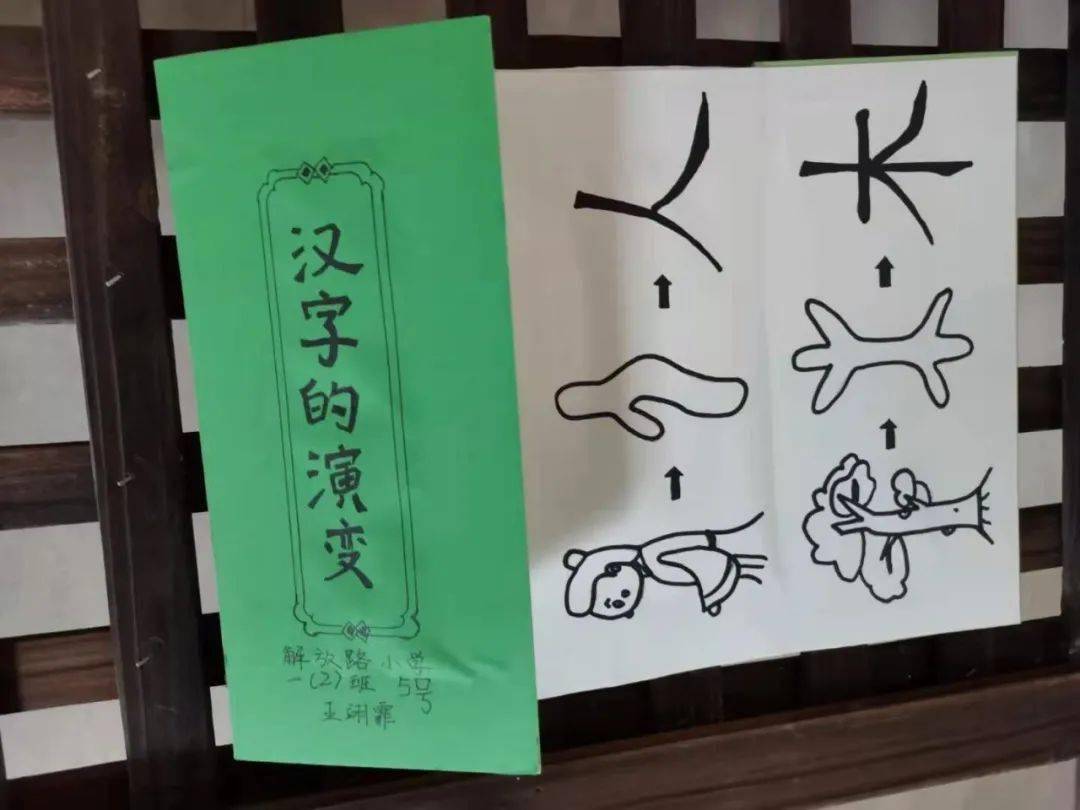 汉字的演变
解放路小学
一(2)班 5号
王翊霏
人
木